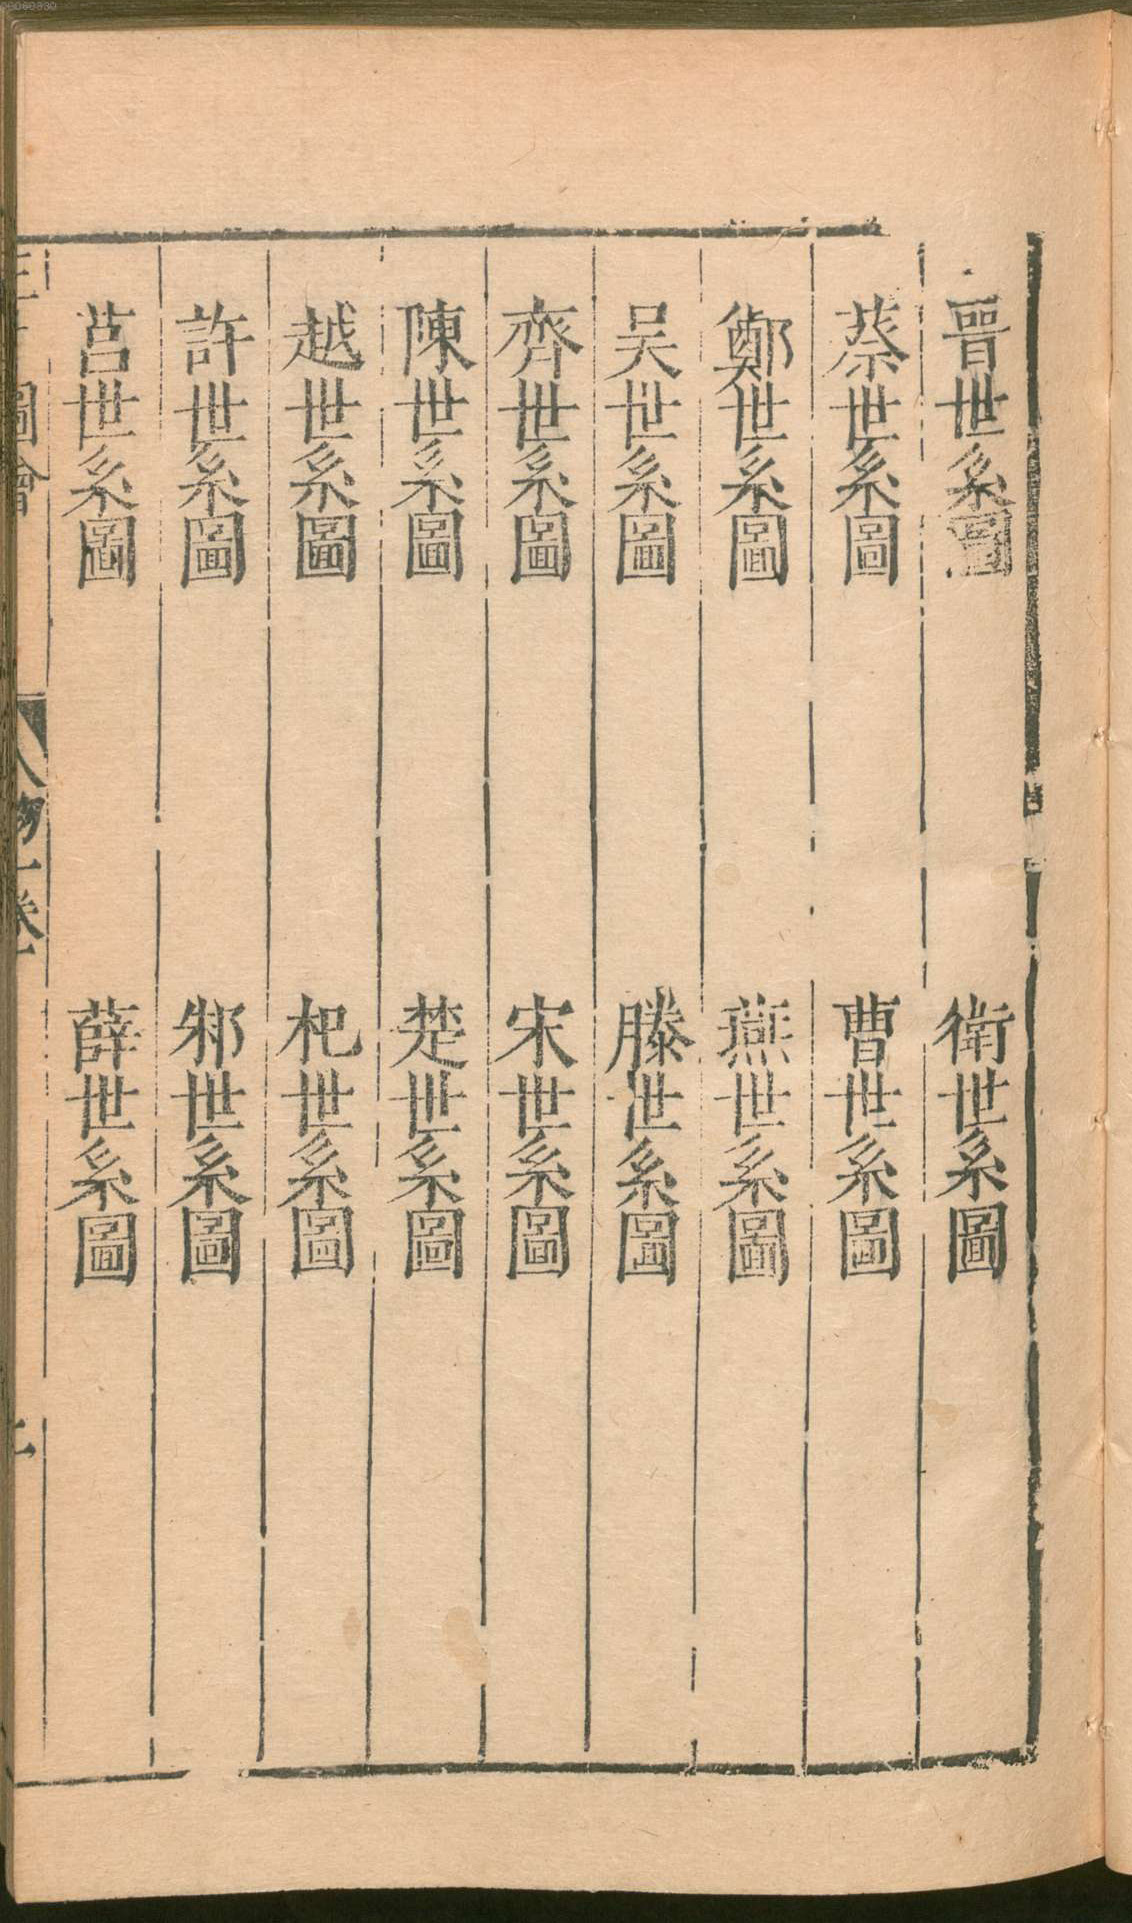 晉世系圖　衛世系圖
蔡世系圖　曹世系圖
鄭世系圖　燕世系圖
吳世系圖　滕世系圖
齊世系圖　宋世系圖
陳世系圖　楚世系圖
越世系圖　杞世系圖
許世系圖　邾世系圖
莒世系圖　薛世系圖
圖會　人物一卷